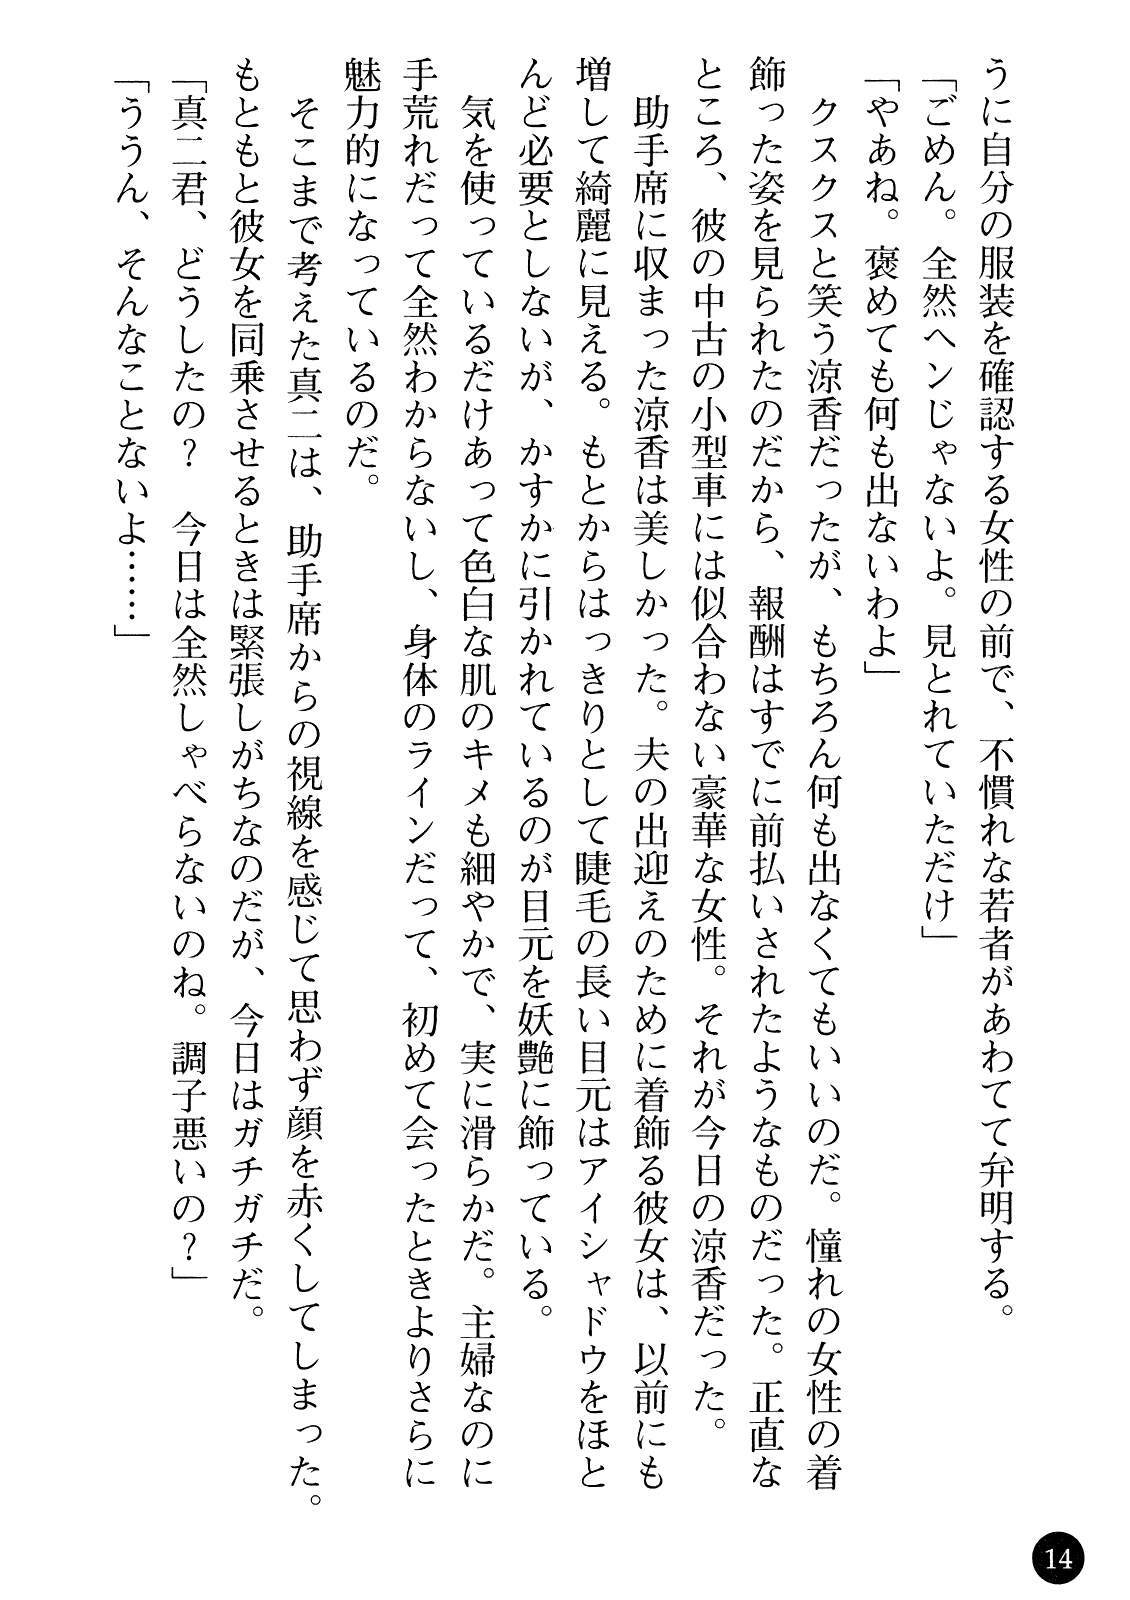 うに自分の服装を確認する女性の前で、不慣れな若者があわてて弁明する。
「ごめん。全然ヘンじゃないよ。見とれていただけ」
「やあね。褒めても何も出ないわよ」
クスクスと笑う涼香だったが、もちろん何も出なくてもいいのだ。憧れの女性の着
飾った姿を見られたのだから、報酬はすでに前払いされたようなものだった。正直な
ところ、彼の中古の小型車には似合わない豪華な女性。それが今日の涼香だった。
助手席に収まった涼香は美しかった。夫の出迎えのために着飾る彼女は、以前にも
増して綺麗に見える。もとからはっきりとして睫毛の長い目元はアイシャドウをほと
んど必要としないが、かすかに引かれているのが目元を妖艶に飾っている。
気を使っているだけあって色白な肌のキメも細やかで、実に滑らかだ。主婦なのに
手荒れだって全然わからないし、身体のラインだって、初めて会ったときよりさらに
魅力的になっているのだ。
そこまで考えた真二は、助手席からの視線を感じて思わず顔を赤くしてしまった。
もともと彼女を同乗させるときは緊張しがちなのだが、今日はガチガチだ。
「真二君、どうしたの？　今日は全然しゃべらないのね。調子悪いの？」
「ううん、そんなことないよ……」
14